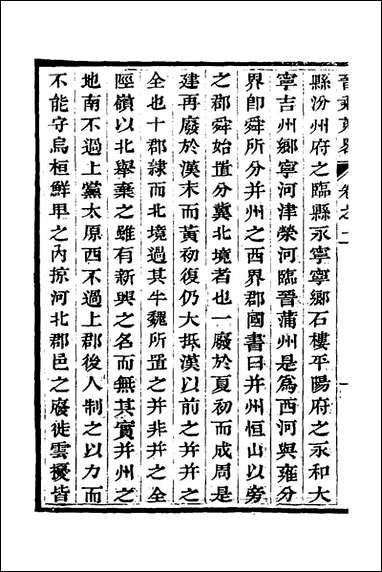 晉乘蒐畧 卷之十一
縣汾州府之臨縣永寧寧鄉石樓平陽府之永和大
寧吉州鄉寧河津榮河臨晉蒲州是爲西河與雍分
界卽舜所分并州之西界郡國書曰并州恒山以旁
之郡舜始置分冀北境者也一廢於夏初而成周是
建再廢於漢末而黃初復仍大抵漢以前之并并之
全也十郡隸而北境過其半魏所置之并非并之全
陘嶺以北舉棄之雖有新興之名而無其實并州之
地南不過上黨太原西不過上郡後人制之以力而
不能守烏桓鮮卑之內掠河北郡邑之廢徙雲擾皆